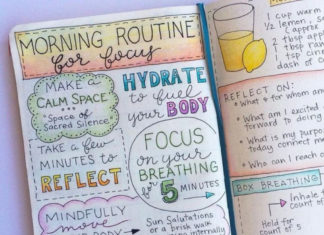 MORNING ROUTINE
for focus
MAKE A
CALM SPACE
Space of
Sacred Silence
HYDRATE
to fuel
your
BODY
TAKE a few
MINUTES to
REFLECT
FOCUS
on your
BREATHING
for 5
MINUTES
MINDFULLY
move
BODY
Sun Salutations
or a brisk walk
internally
1 cup warm
1/2 lemon,
(approx
2 tbsp
1 tbsp
1 tsp
dash of
REFLECT ON:
• What + for whom am
• What am I excited
forward to doing
• What is my purpose
today connect
• Who can I reach
BOX BREATHING
Inhale
count of
Hold for
count of 5